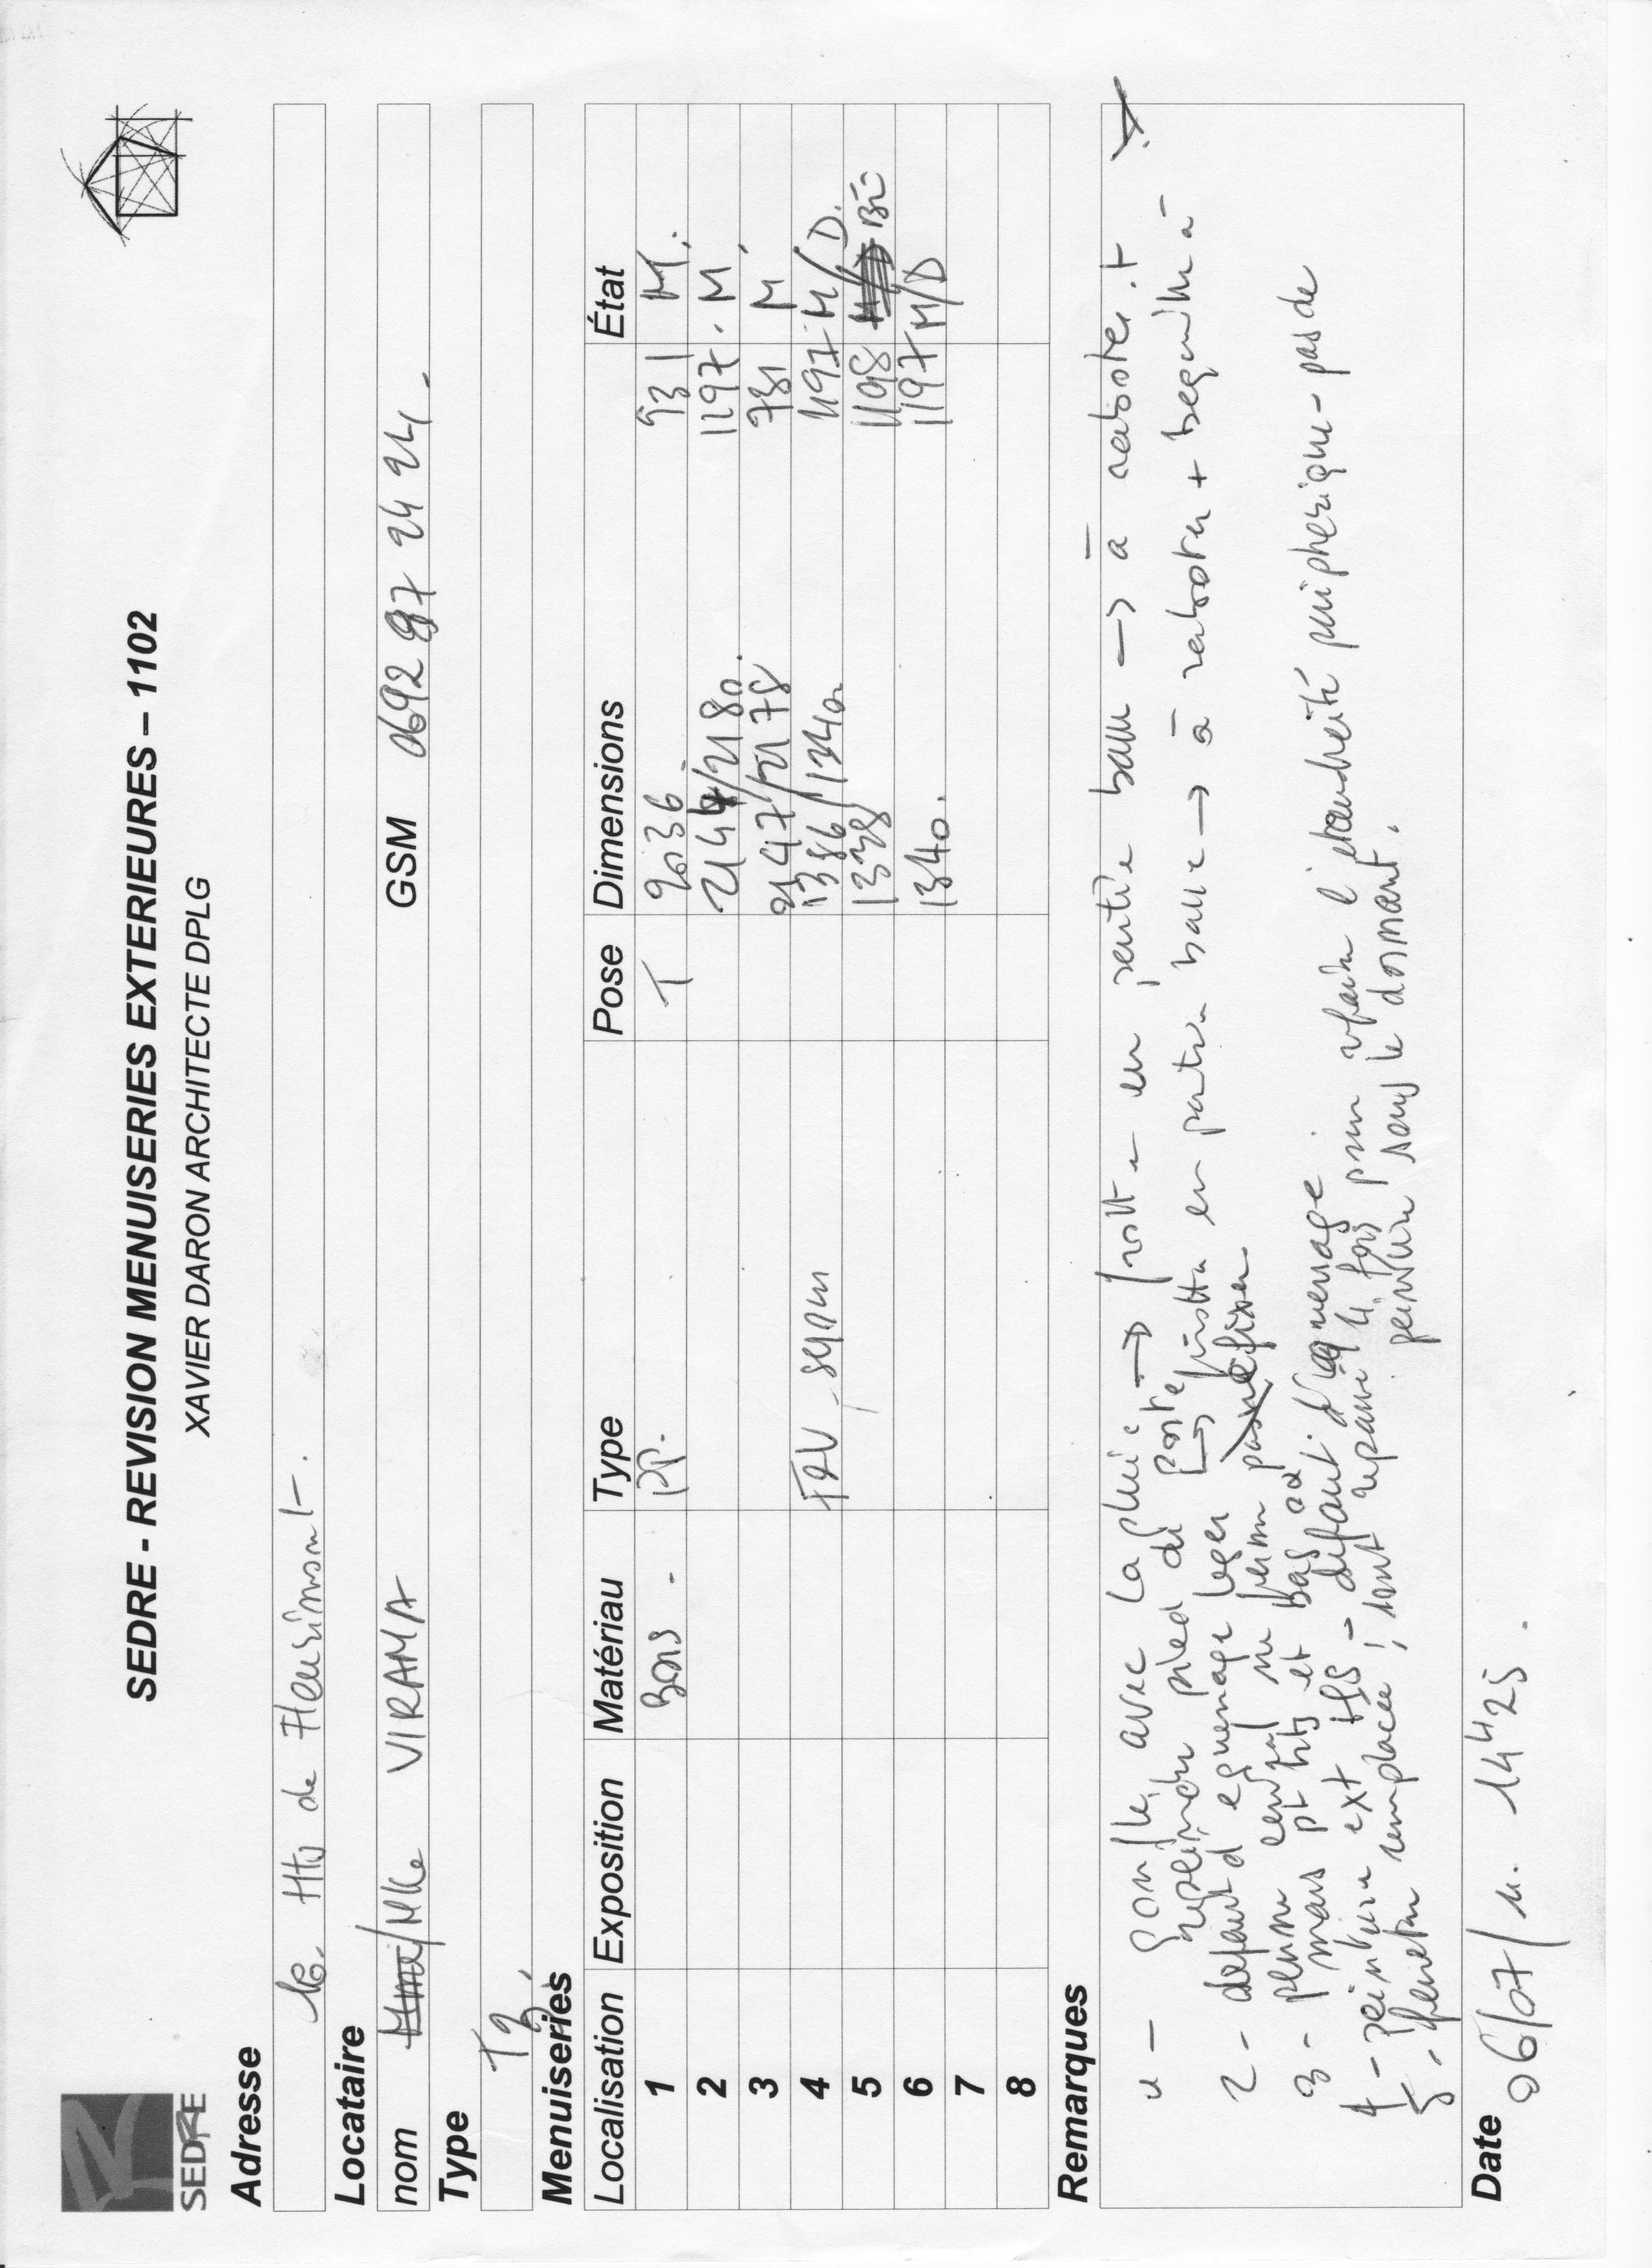 SEDRE
SEDRE - REVISION MENUISERIES EXTERIEURES – 1102
XAVIER DARON ARCHITECTE DPLG
Adresse
16. Htrs de Fleurimont.
Locataire
nom Mme/Mlle VIRAMA GSM 0692 97 24 24.
Type
T3.
Menuiseries
Localisation Exposition Matériau Type Pose Dimensions État
1 Bois - PP. T 2036 931 M.
2 2144/2180. 1197. M
3 2147/2178 731 M.
4 1336/1340 1197 M/D.
5 1338 1198 M/D
6 1340. 1197 M/D
7
8
Remarques
1 - gonfle, avec la pluie → frotte en partie basse → à raboter. +
reprendre pied de porte
2 - defaut d'equerrage leger → frotte en partie basse → à raboter + bequille à
refixer
3 - pene central ne ferme pas
mais pt hts et bas ok
4 - peinture ext HS - defaut d'equerrage.
5 - fenetre remplacée, sont repassé 4 fois pour refaire l'étanchéité peripherique - pas de
peinture sous le dormant.
Date 06/07/11. 14H25.